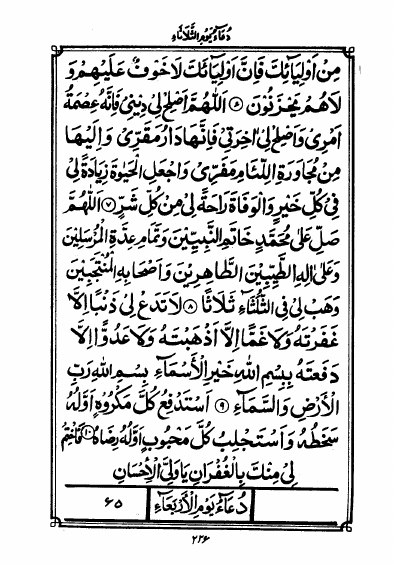 دُعَاءُ يَوْمِ الثَّلَاثَاءِ
مِنْ اَوْلِيَائِكَ فَاِنَّ اَوْلِيَائَكَ لَا خَوْفٌ عَلَيْهِمْ وَ
لَا هُمْ يَحْزَنُوْنَ ⑤ اَللّٰهُمَّ اَصْلِحْ لِيْ دِيْنِيْ فَاِنَّهُ عِصْمَةُ
اَمْرِيْ وَاَصْلِحْ لِيْ اٰخِرَتِيْ فَاِنَّهَا دَارُ مَقَرِّيْ وَاِلَيْهَا
مِنْ مُجَاوَرَةِ اللِّئَامِ مَفَرِّيْ وَاجْعَلِ الْحَيٰوةَ زِيَادَةً لِيْ
فِيْ كُلِّ خَيْرٍ وَالْوَفَاةَ رَاحَةً لِيْ مِنْ كُلِّ شَرٍّ ⑦ اَللّٰهُمَّ
صَلِّ عَلٰى مُحَمَّدٍ خَاتَمِ النَّبِيِّيْنَ وَتَمَامِ عِدَّةِ الْمُرْسَلِيْنَ
وَعَلٰى اٰلِهِ الطَّيِّبِيْنَ الطَّاهِرِيْنَ وَاَصْحَابِهِ الْمُنْتَجَبِيْنَ
وَهَبْ لِيْ فِي الثُّلَثَاءِ ثَلَاثًا ⑧ لَا تَدَعْ لِيْ ذَنْبًا اِلَّا
غَفَرْتَهُ وَلَا غَمًّا اِلَّا اَذْهَبْتَهُ وَلَا عَدُوًّا اِلَّا
دَفَعْتَهُ بِبِسْمِ اللّٰهِ خَيْرِ الْاَسْمَآءِ بِسْمِ اللّٰهِ رَبِّ
الْاَرْضِ وَالسَّمَآءِ ⑨ اَسْتَدْفِعُ كُلَّ مَكْرُوْهٍ اَوَّلُهُ
سَخَطُهُ وَاَسْتَجْلِبُ كُلَّ مَحْبُوْبٍ اَوَّلُهُ رِضَاهُ ⑩ فَاخْتِمْ
لِيْ مِنْكَ بِالْغُفْرَانِ يَا وَلِيَّ الْاِحْسَانِ
دُعَاءُ يَوْمِ الْاَرْبَعَاءِ ۶۵
۲۲۶